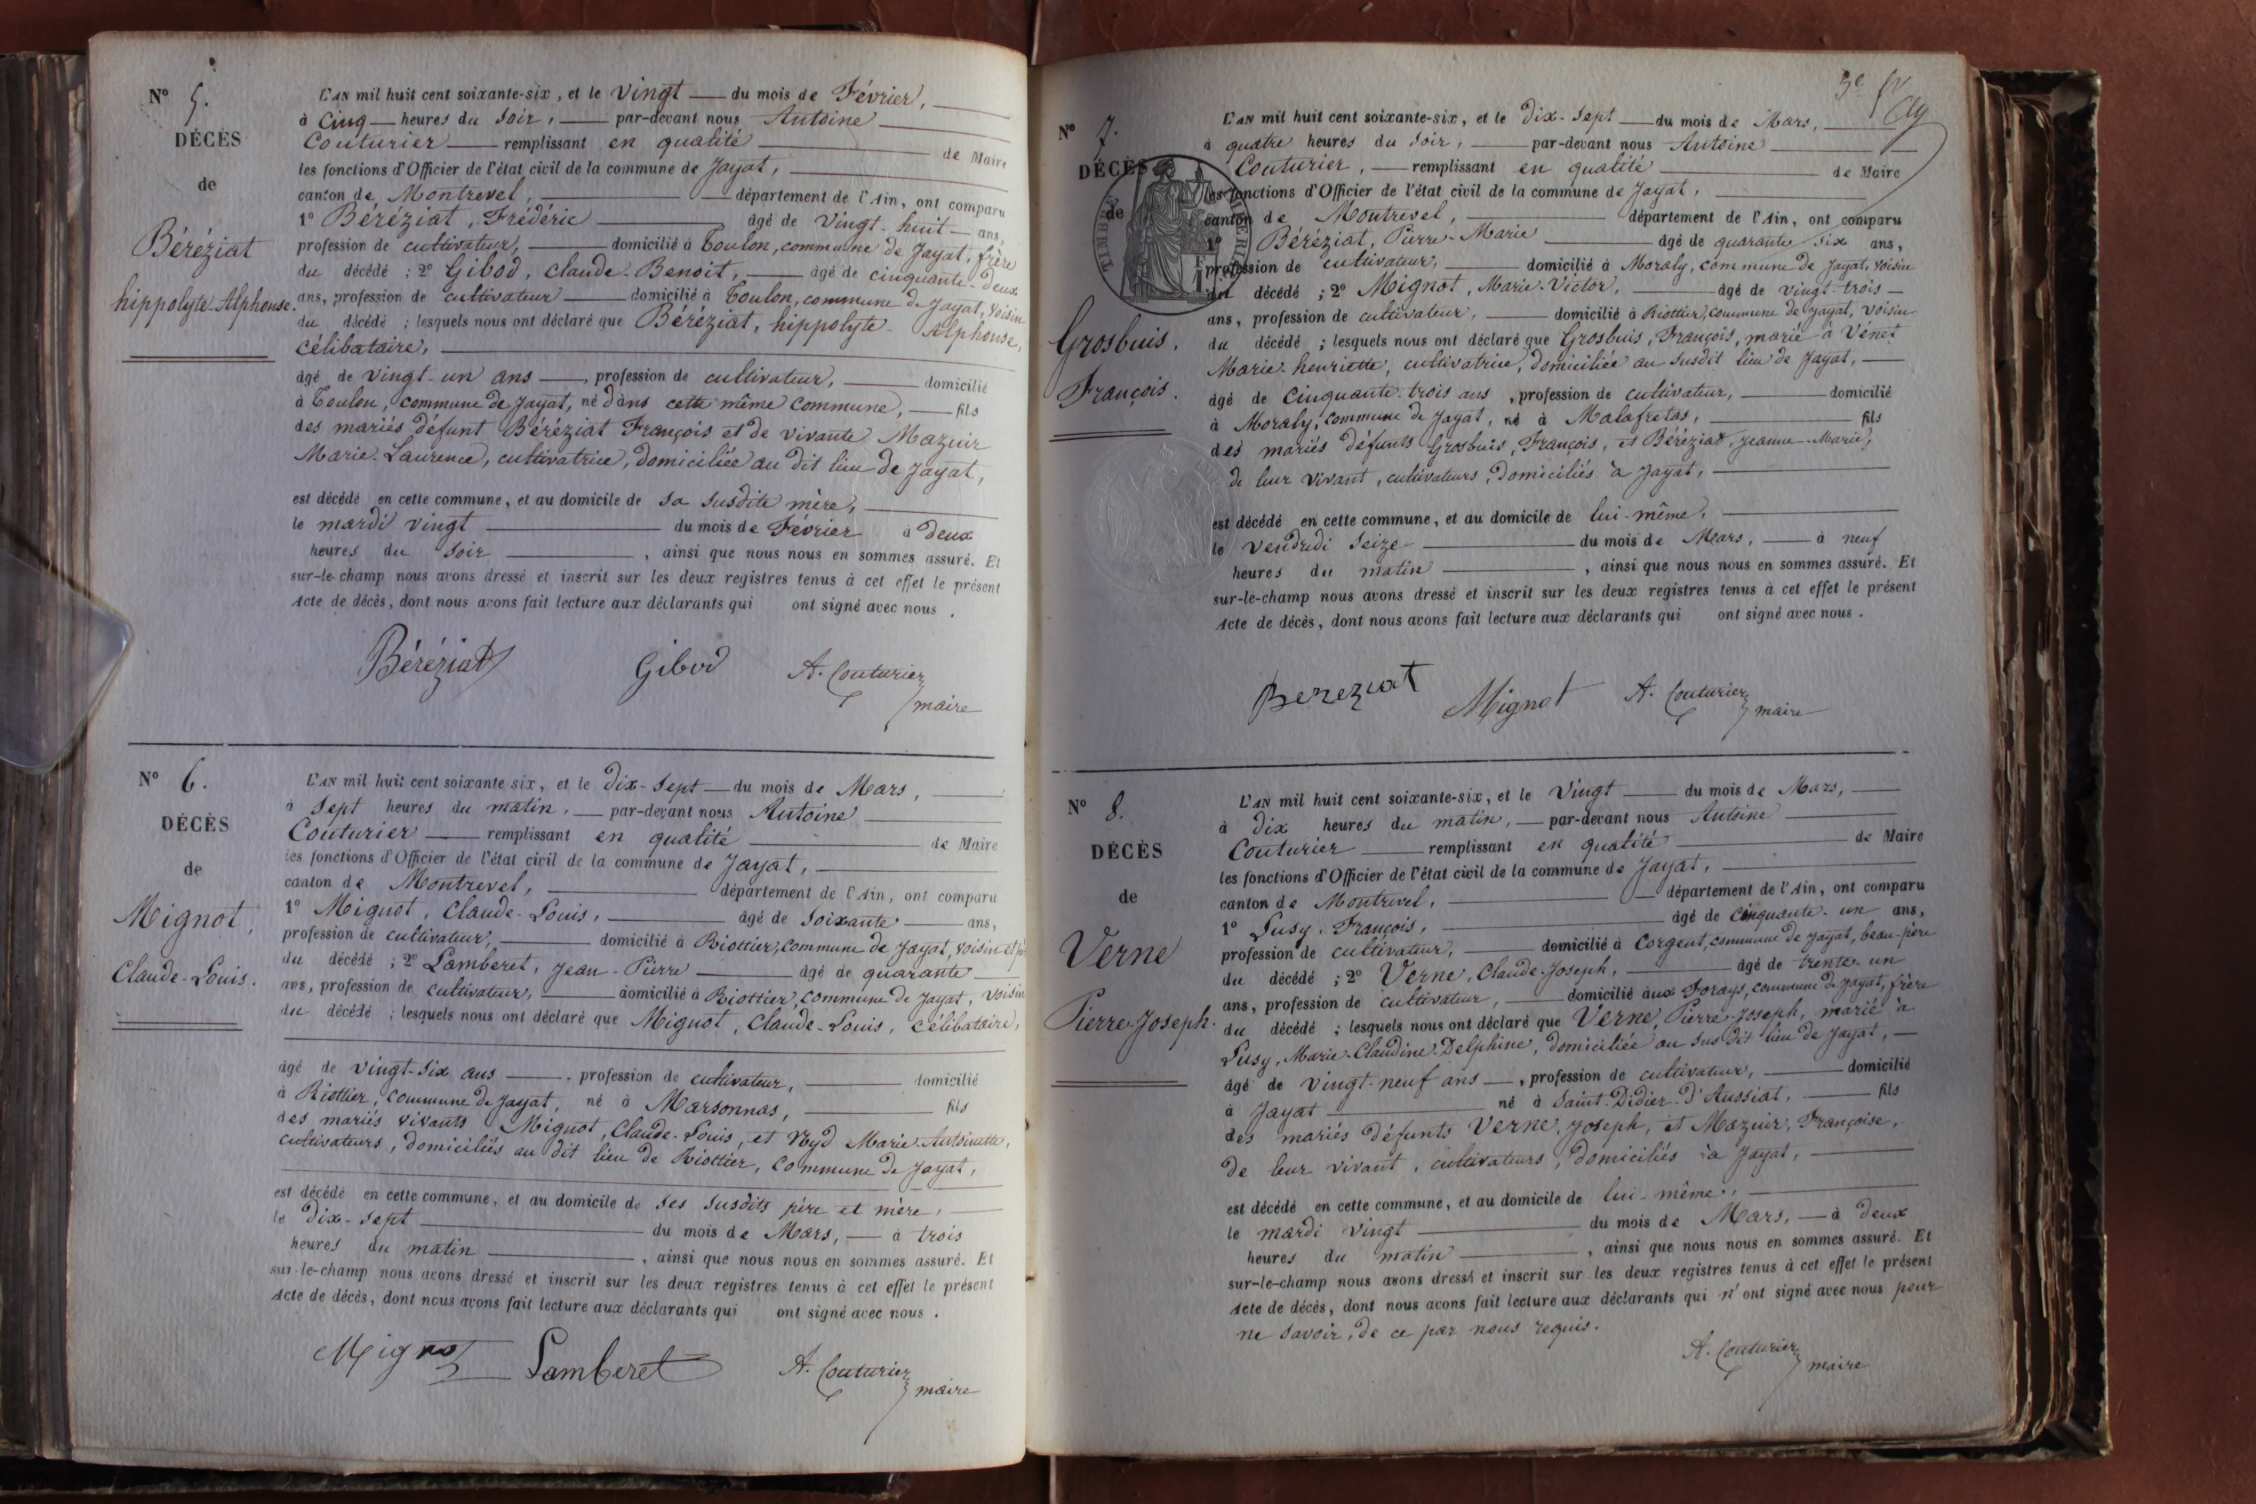 N° 5.
DÉCÈS
de
Béréziat
hippolyte-Alphonse.
L'AN mil huit cent soixante-six, et le vingt du mois de Février,
à cinq heures du soir, par-devant nous Antoine
Couturier remplissant en qualité de Maire
les fonctions d'Officier de l'état civil de la commune de Jayat,
canton de Montrevel, département de l'Ain, ont comparu
1° Béréziat, Frédéric âgé de vingt-huit ans,
profession de cultivateur, domicilié à Toulon, commune de Jayat, frère
du décédé ; 2° Gibod, Claude-Benoit, âgé de cinquante-deux
ans, profession de cultivateur domicilié à Toulon, commune de Jayat, voisin
du décédé ; lesquels nous ont déclaré que Béréziat, hippolyte-Alphonse,
célibataire,
âgé de vingt-un ans, profession de cultivateur, domicilié
à Toulon, commune de Jayat, né dans cette même commune, fils
des mariés défunt Béréziat François et de vivante Mazuir
Marie-Laurence, cultivatrice, domiciliée au dit lieu de Jayat,
est décédé en cette commune, et au domicile de sa susdite mère,
le mardi vingt du mois de Février à deux
heures du soir, ainsi que nous nous en sommes assuré. Et
sur-le-champ nous avons dressé et inscrit sur les deux registres tenus à cet effet le présent
Acte de décès, dont nous avons fait lecture aux déclarants qui ont signé avec nous.
Béréziat Gibod A. Couturier
maire
N° 6.
DÉCÈS
de
Mignot,
Claude-Louis.
L'AN mil huit cent soixante six, et le dix-sept du mois de Mars,
à sept heures du matin, par-devant nous Antoine
Couturier remplissant en qualité de Maire
les fonctions d'Officier de l'état civil de la commune de Jayat,
canton de Montrevel, département de l'Ain, ont comparu
1° Mignot, Claude-Louis, âgé de soixante ans,
profession de cultivateur, domicilié à Riottier, commune de Jayat, voisin et
du décédé ; 2° Lamberet, Jean-Pierre âgé de quarante
ans, profession de cultivateur, domicilié à Riottier, commune de Jayat, voisin
du décédé ; lesquels nous ont déclaré que Mignot, Claude-Louis, célibataire,
âgé de vingt-six ans, profession de cultivateur, domicilié
à Riottier, commune de Jayat, né à Marsonnas, fils
des mariés vivants Mignot, Claude-Louis, et Nyd Marie-Antoinette,
cultivateurs, domiciliés au dit lieu de Riottier, commune de Jayat,
est décédé en cette commune, et au domicile de ses susdits père et mère,
le dix-sept du mois de Mars, à trois
heures du matin, ainsi que nous nous en sommes assuré. Et
sur-le-champ nous avons dressé et inscrit sur les deux registres tenus à cet effet le présent
Acte de décès, dont nous avons fait lecture aux déclarants qui ont signé avec nous.
Mignot Lamberet A. Couturier
maire
3e
N° 7.
DÉCÈS
de
Grosbuis,
François.
L'AN mil huit cent soixante-six, et le dix-sept du mois de Mars,
à quatre heures du soir, par-devant nous Antoine
Couturier, remplissant en qualité de Maire
les fonctions d'Officier de l'état civil de la commune de Jayat,
canton de Montrevel, département de l'Ain, ont comparu
1° Béréziat, Pierre-Marie âgé de quarante six ans,
profession de cultivateur, domicilié à Moraly, commune de Jayat, voisin
du décédé ; 2° Mignot, Marie-Victor, âgé de vingt-trois
ans, profession de cultivateur, domicilié à Riottier, commune de Jayat, voisin
du décédé ; lesquels nous ont déclaré que Grosbuis, François, marié à Vénet
Marie-henriette, cultivatrice, domiciliée au susdit lieu de Jayat,
âgé de cinquante-trois ans, profession de cultivateur, domicilié
à Moraly, commune de Jayat, né à Malafretas, fils
des mariés défunts Grosbuis, François, et Béréziat, Jeanne-Marie,
de leur vivant, cultivateurs, domiciliés à Jayat,
est décédé en cette commune, et au domicile de lui-même,
le vendredi seize du mois de Mars, à neuf
heures du matin, ainsi que nous nous en sommes assuré. Et
sur-le-champ nous avons dressé et inscrit sur les deux registres tenus à cet effet le présent
Acte de décès, dont nous avons fait lecture aux déclarants qui ont signé avec nous.
Bereziat Mignot A. Couturier
maire
N° 8.
DÉCÈS
de
Verne
Pierre-Joseph.
L'AN mil huit cent soixante-six, et le vingt du mois de Mars,
à dix heures du matin, par-devant nous Antoine
Couturier remplissant en qualité de Maire
les fonctions d'Officier de l'état civil de la commune de Jayat,
canton de Montrevel, département de l'Ain, ont comparu
1° Lusy, François, âgé de cinquante-un ans,
profession de cultivateur, domicilié à Corgent, commune de Jayat, beau-père
du décédé ; 2° Verne, Claude-Joseph, âgé de trente-un
ans, profession de cultivateur, domicilié aux Forays, commune de Jayat, frère
du décédé ; lesquels nous ont déclaré que Verne, Pierre-Joseph, marié à
Lusy, Marie-Claudine-Delphine, domiciliée au sus dit lieu de Jayat,
âgé de vingt-neuf ans, profession de cultivateur, domicilié
à Jayat né à Saint-Didier-d'Aussiat, fils
des mariés défunts Verne, Joseph, et Mazuir, Françoise,
de leur vivant, cultivateurs, domiciliés à Jayat,
est décédé en cette commune, et au domicile de lui-même,
le mardi vingt du mois de Mars, à deux
heures du matin, ainsi que nous nous en sommes assuré. Et
sur-le-champ nous avons dressé et inscrit sur les deux registres tenus à cet effet le présent
Acte de décès, dont nous avons fait lecture aux déclarants qui n'ont signé avec nous pour
ne savoir, de ce par nous requis.
A. Couturier
maire